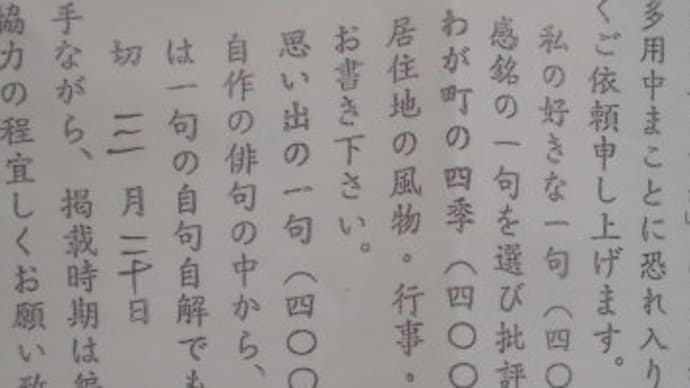 多用中まことに恐れ入り
くご依頼申し上げます。
私の好きな一句（四〇
感銘の一句を選び批評
わが町の四季（四〇〇
居住地の風物・行事・
お書き下さい。
思い出の一句（四〇〇
自作の俳句の中から、
は一句の自句自解でも
切 三 月二十日
手ながら、掲載時期は編
協力の程宜しくお願い致